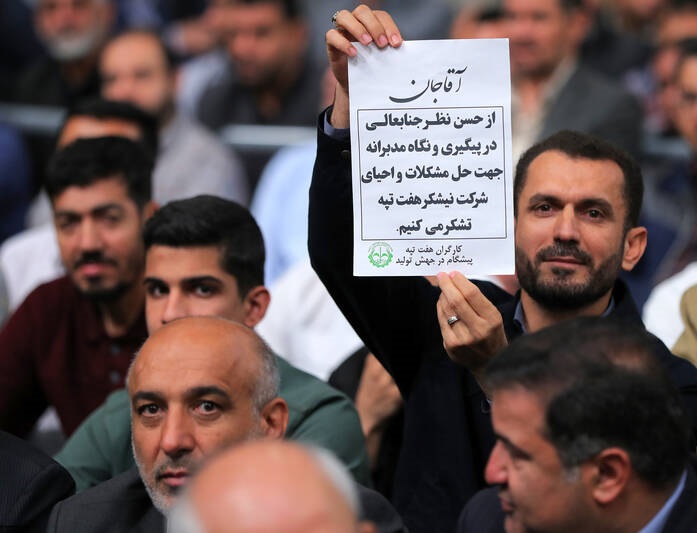 آقاجان
از حسن نظر جنابعالی
در پیگیری و نگاه مدبرانه
جهت حل مشکلات و احیای
شرکت نیشکر هفت تپه
تشکر می کنیم.
کارگران هفت تپه
پیشگام در جهش تولید